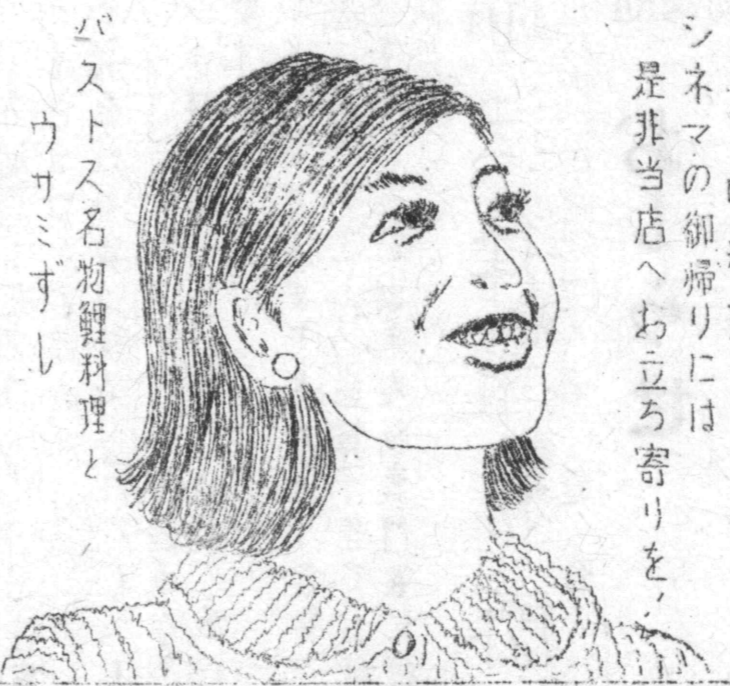 シネマの御帰りには
是非当店へお立ち寄りを！
バストス名物鯉料理と
ウサミずし